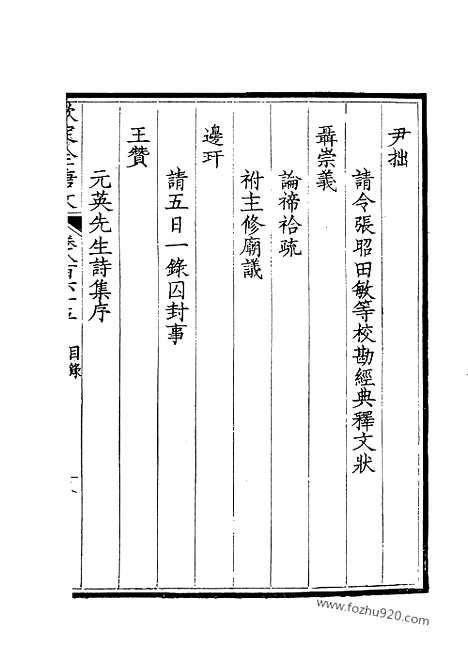 尹拙
請令張昭田敏等校勘經典釋文狀
聶崇義
論禘祫疏
祔主修廟議
邊玕
請五日一錄囚封事
王贊
元英先生詩集序
欽定全唐文
卷八百六十五 目錄
www.fozhu920.com